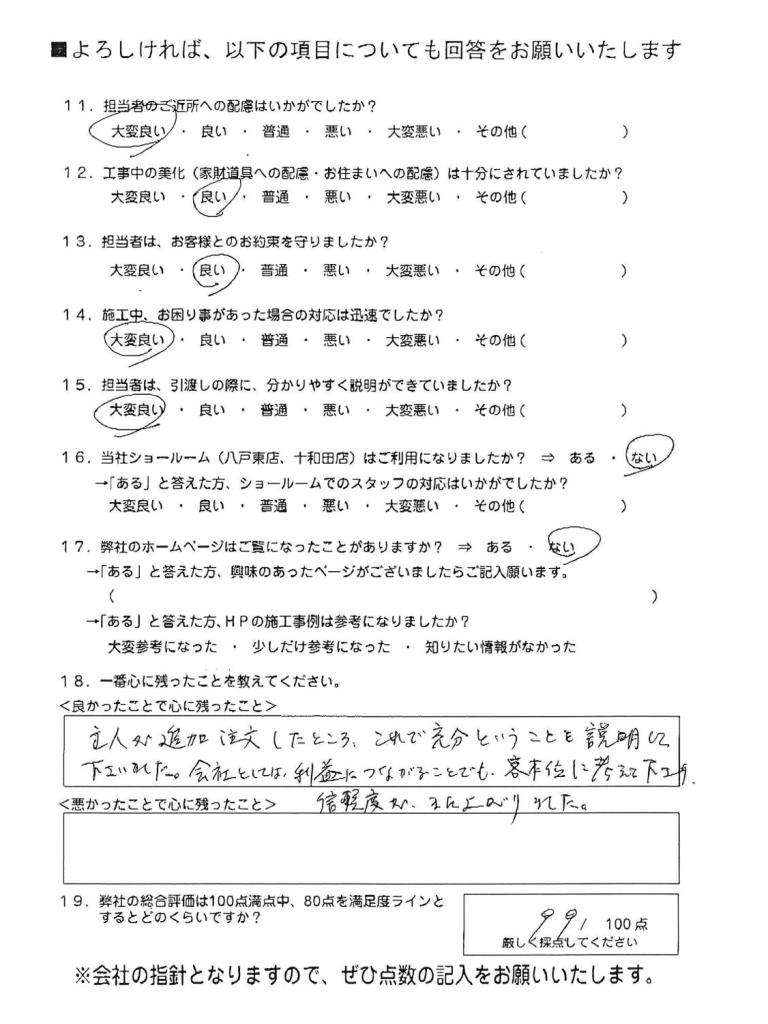 ■よろしければ、以下の項目についても回答をお願いいたします
11．担当者のご近所への配慮はいかがでしたか？
大変良い ・ 良い ・ 普通 ・ 悪い ・ 大変悪い ・ その他（ ）
12．工事中の美化（家財道具への配慮・お住まいへの配慮）は十分にされていましたか？
大変良い ・ 良い ・ 普通 ・ 悪い ・ 大変悪い ・ その他（ ）
13．担当者は、お客様とのお約束を守りましたか？
大変良い ・ 良い ・ 普通 ・ 悪い ・ 大変悪い ・ その他（ ）
14．施工中、お困り事があった場合の対応は迅速でしたか？
大変良い ・ 良い ・ 普通 ・ 悪い ・ 大変悪い ・ その他（ ）
15．担当者は、引渡しの際に、分かりやすく説明ができていましたか？
大変良い ・ 良い ・ 普通 ・ 悪い ・ 大変悪い ・ その他（ ）
16．当社ショールーム（八戸東店、十和田店）はご利用になりましたか？ ⇒ ある ・ ない
→「ある」と答えた方、ショールームでのスタッフの対応はいかがでしたか？
大変良い ・ 良い ・ 普通 ・ 悪い ・ 大変悪い ・ その他（ ）
17．弊社のホームページはご覧になったことがありますか？ ⇒ ある ・ ない
→「ある」と答えた方、興味のあったページがございましたらご記入願います。
（ ）
→「ある」と答えた方、HPの施工事例は参考になりましたか？
大変参考になった ・ 少しだけ参考になった ・ 知りたい情報がなかった
18．一番心に残ったことを教えてください。
＜良かったことで心に残ったこと＞
主人が追加注文したところ、これで充分ということを説明して
下さいました。会社としては、利益につながることでも、客本位に考えて下さり、
信軽度が、 上がりました。
＜悪かったことで心に残ったこと＞
19．弊社の総合評価は100点満点中、80点を満足度ラインと
するとどのくらいですか？
99/ 100点
厳しく採点してください
※会社の指針となりますので、ぜひ点数の記入をお願いいたします。